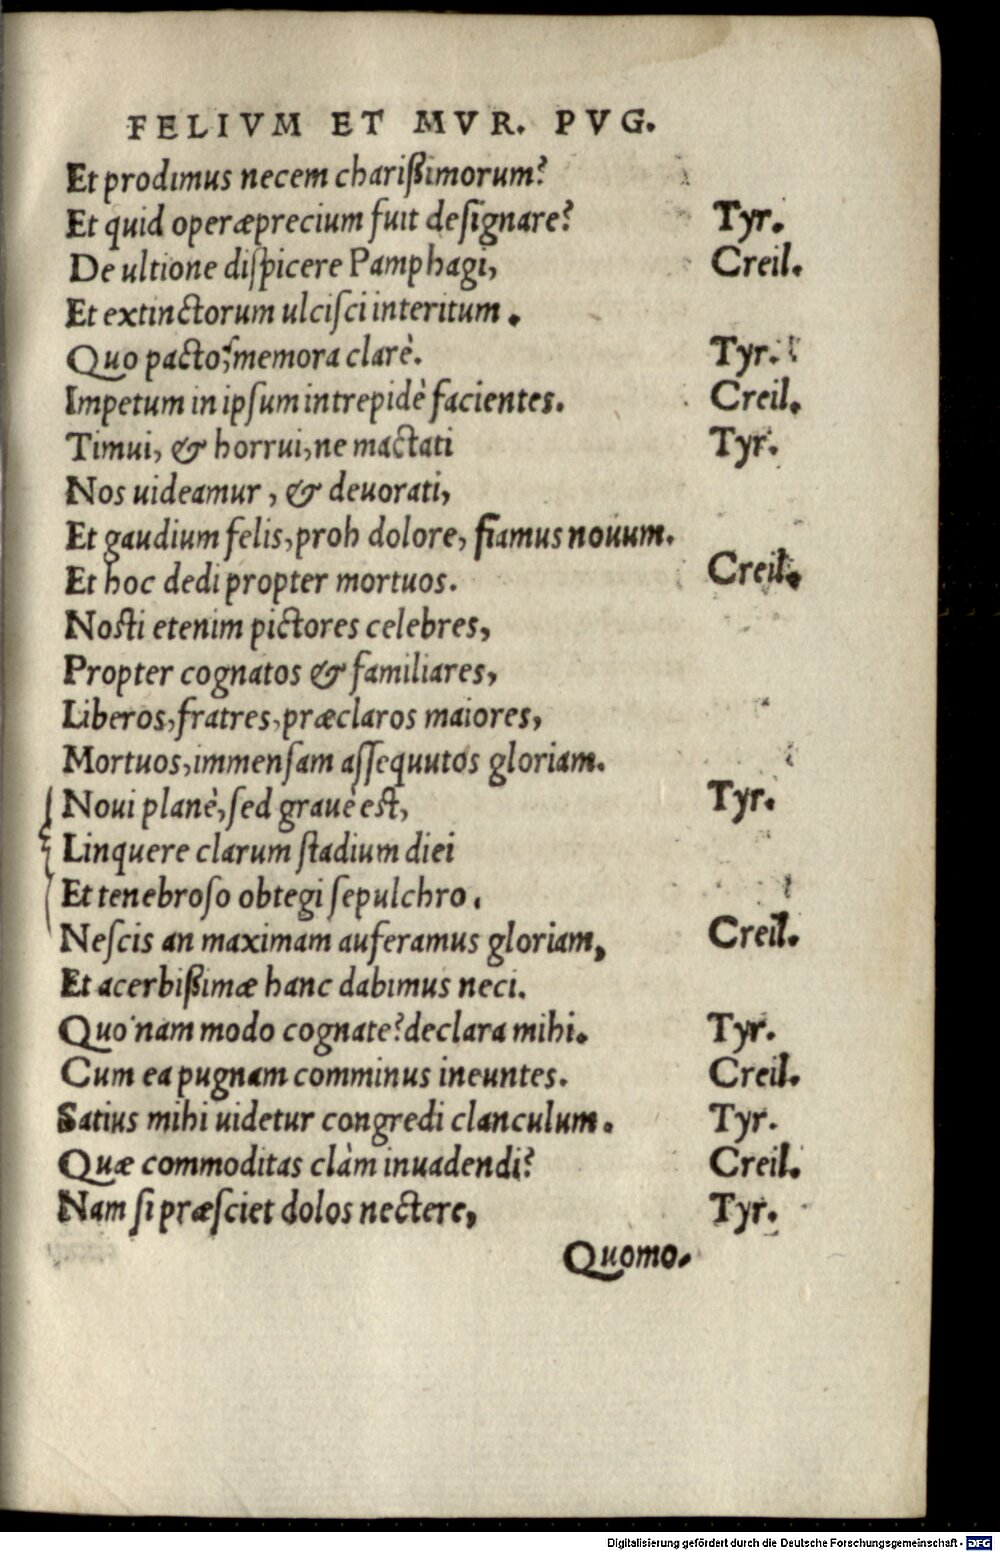 FELIVM ET MVR. PVG.
Et prodimus necem charißimorum?
Et quid operæprecium fuit deſignare? Tyr.
De ultione diſpicere Pamphagi, Creil.
Et extinctorum ulciſci interitum.
Quo pacto? memora clarè. Tyr.
Impetum in ipſum intrepidè facientes. Creil.
Timui, & horrui, ne mactati Tyr.
Nos uideamur, & deuorati,
Et gaudium felis, proh dolore, fiamus nouum.
Et hoc dedi propter mortuos. Creil.
Noſti etenim pictores celebres,
Propter cognatos & familiares,
Liberos, fratres, præclaros maiores,
Mortuos, immenſam aſſequutos gloriam.
Noui planè, ſed graue est, Tyr.
Linquere clarum ſtadium diei
Et tenebroſo obtegi ſepulchro.
Neſcis an maximam auferamus gloriam, Creil.
Et acerbißimæ hanc dabimus neci.
Quo nam modo cognate? declara mihi. Tyr.
Cum ea pugnam comminus ineuntes. Creil.
Satius mihi uidetur congredi clanculum. Tyr.
Quæ commoditas clàm inuadendi? Creil.
Nam ſi præſciet dolos nectere, Tyr.
Quomo.
Digitalisierung gefördert durch die Deutsche Forschungsgemeinschaft - DFG